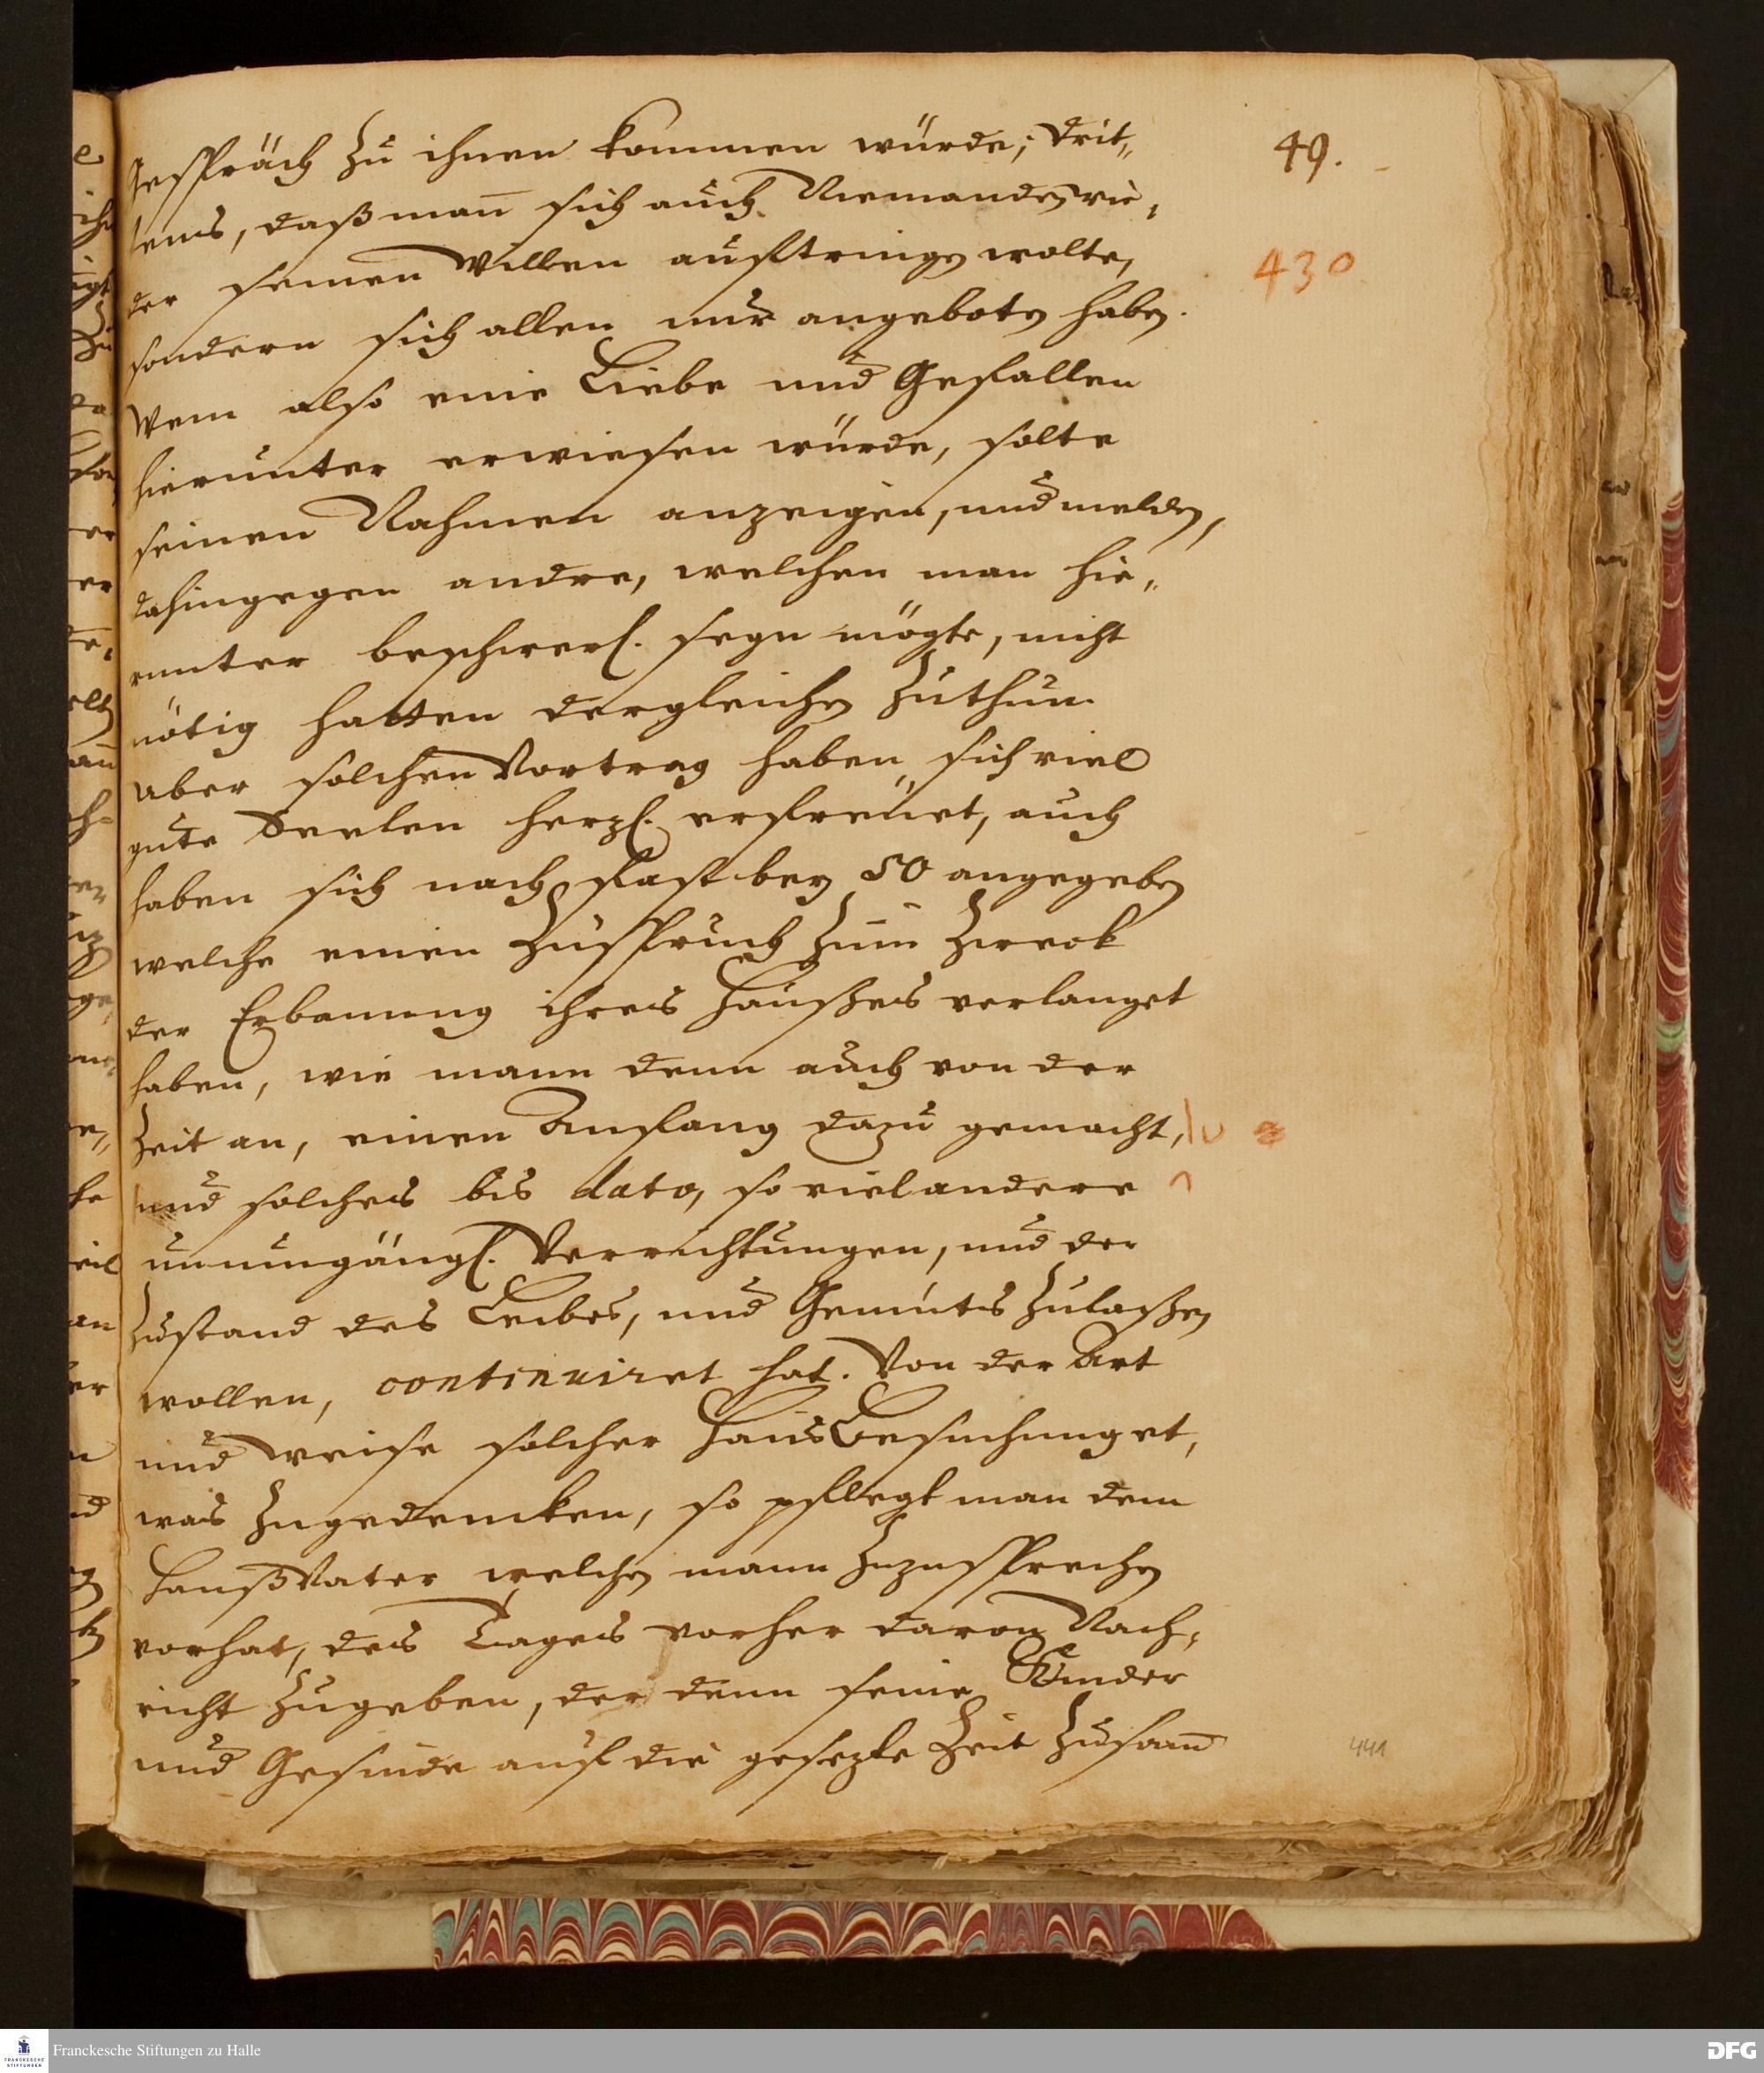 Gespräch zu ihnen kommen würde; Drit„
tens, daß man̅ sich auch Niemanden wie,
der seinen Willen aufdringen wolte,
sondern sich allen nur angeboten haben.
Wem also eine Liebe und Gefallen
hierunter erwiesen würde, solte
seinen Nahmen anzeigen, und melden,
dahingegen andre, welchen man hie„
runter beschwerl. seyn mögte, nicht
nötig hatten dergleichen zuthun.
Uber solchen Vortrag haben sich viel
gute Seelen herzl. erfreuet, auch
haben sich nach fast bey 50 angegeben
welche einen Zuspruch zum Zweck
der Erbauung ihres Haußes verlanget
haben, wie mann denn auch von der
Zeit an, einen Anfang dazu gemacht,
und solches bis dato, so viel andere
unumgängl. Verrichtungen, und der
Zustand des Leibes, und Gemüts zulaßen
wollen, continuiret hat. Von der Art
und weise solcher Haus Besuchung et,
was zugedencken, so pflegt man dem
Hauß Vater welchen mann zuzusprechen
vorhat, des Tages vorher davon Nach,
richt zugeben, der denn seine Kinder
und Gesinde auf die gesezte Zeit zusam̅
49.
430
441
Franckesche Stiftungen zu Halle
FRANCKESCHE
STIFTUNGEN
DFG